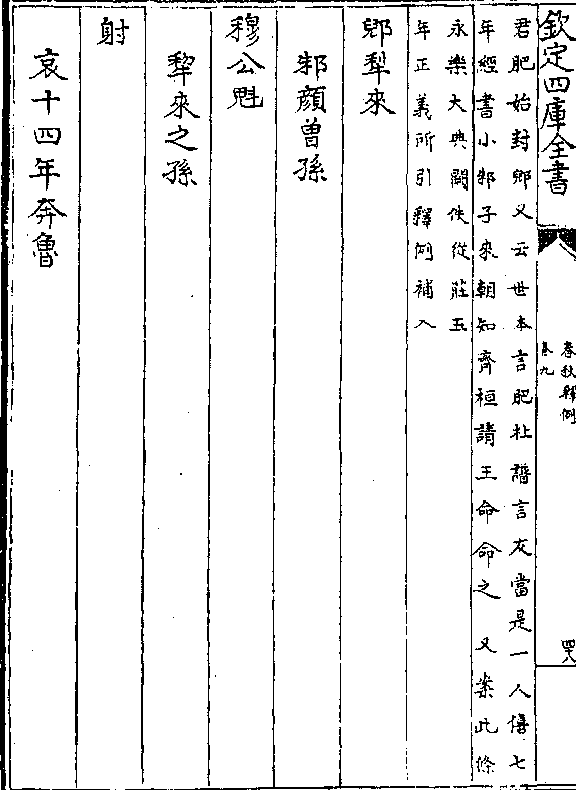 欽定四庫全書
春秋釋例
卷九
四十八
君肥始封郳又云世本言肥杜譜言友當是一人僖七
年經書小邾子來朝知齊桓請王命命之 又案此條
永樂大典闕佚從莊五
年正義所引釋例補入
郳犁來
邾顔曾孫
穆公魁
犂來之孫
射
哀十四年奔魯